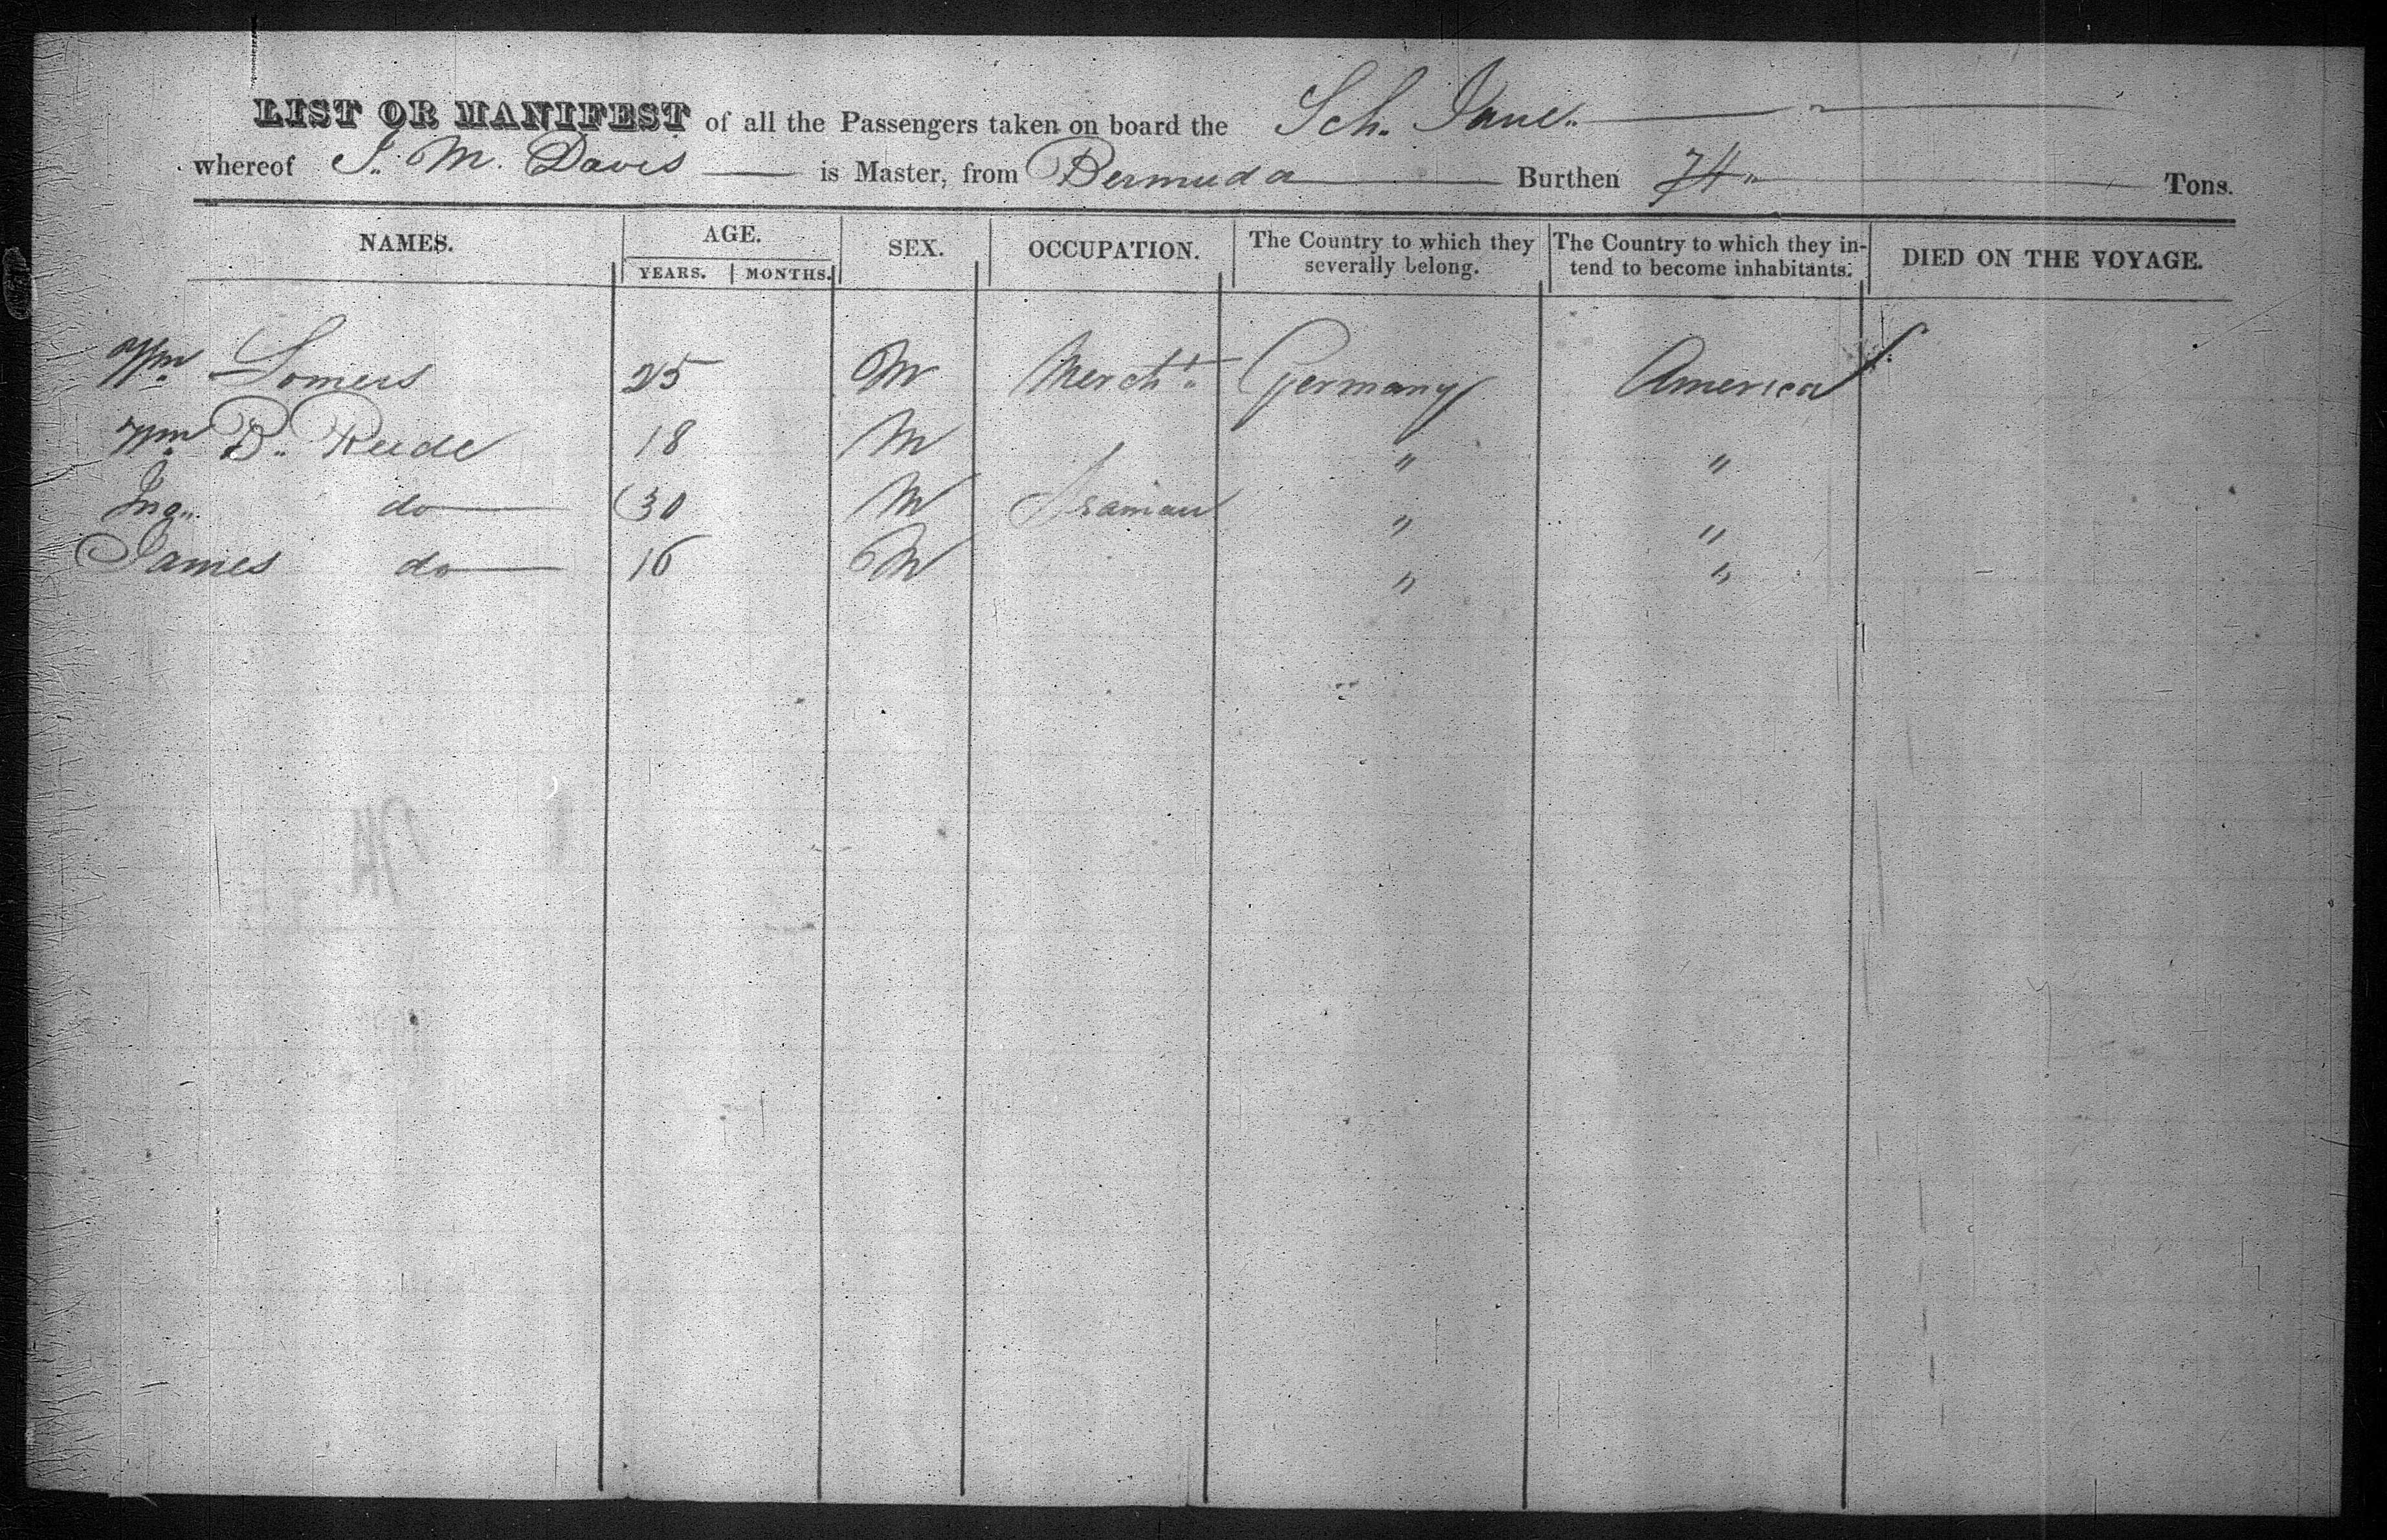 LIST OR MANIFEST of all the Passengers taken on board the Sch. Jane
whereof J. M. Davis is Master, from Bermuda Burthen 74 Tons.
NAMES. AGE. YEARS. MONTHS. SEX. OCCUPATION. The Country to which they severally belong. The Country to which they intend to become inhabitants. DIED ON THE VOYAGE.
Wm Somers 25 M Mercht. Germany America
Wm B. Reede 18 M " "
Jno. do 30 M " "
James do 16 M " "